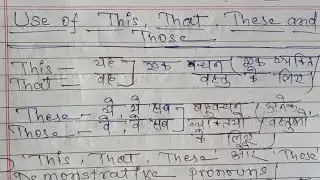 Use of This, That, These and
Those
This — यह ] एक वचन [ एक व्यक्ति
That — वह ] वस्तु के लिए
These — ये, ये सब ] बहुवचन [ अनेक
Those — वे, वे सब ] व्यक्तियो वस्तुओ
के लिए
'This, That, These' और 'Those'
Demonstrative pronouns